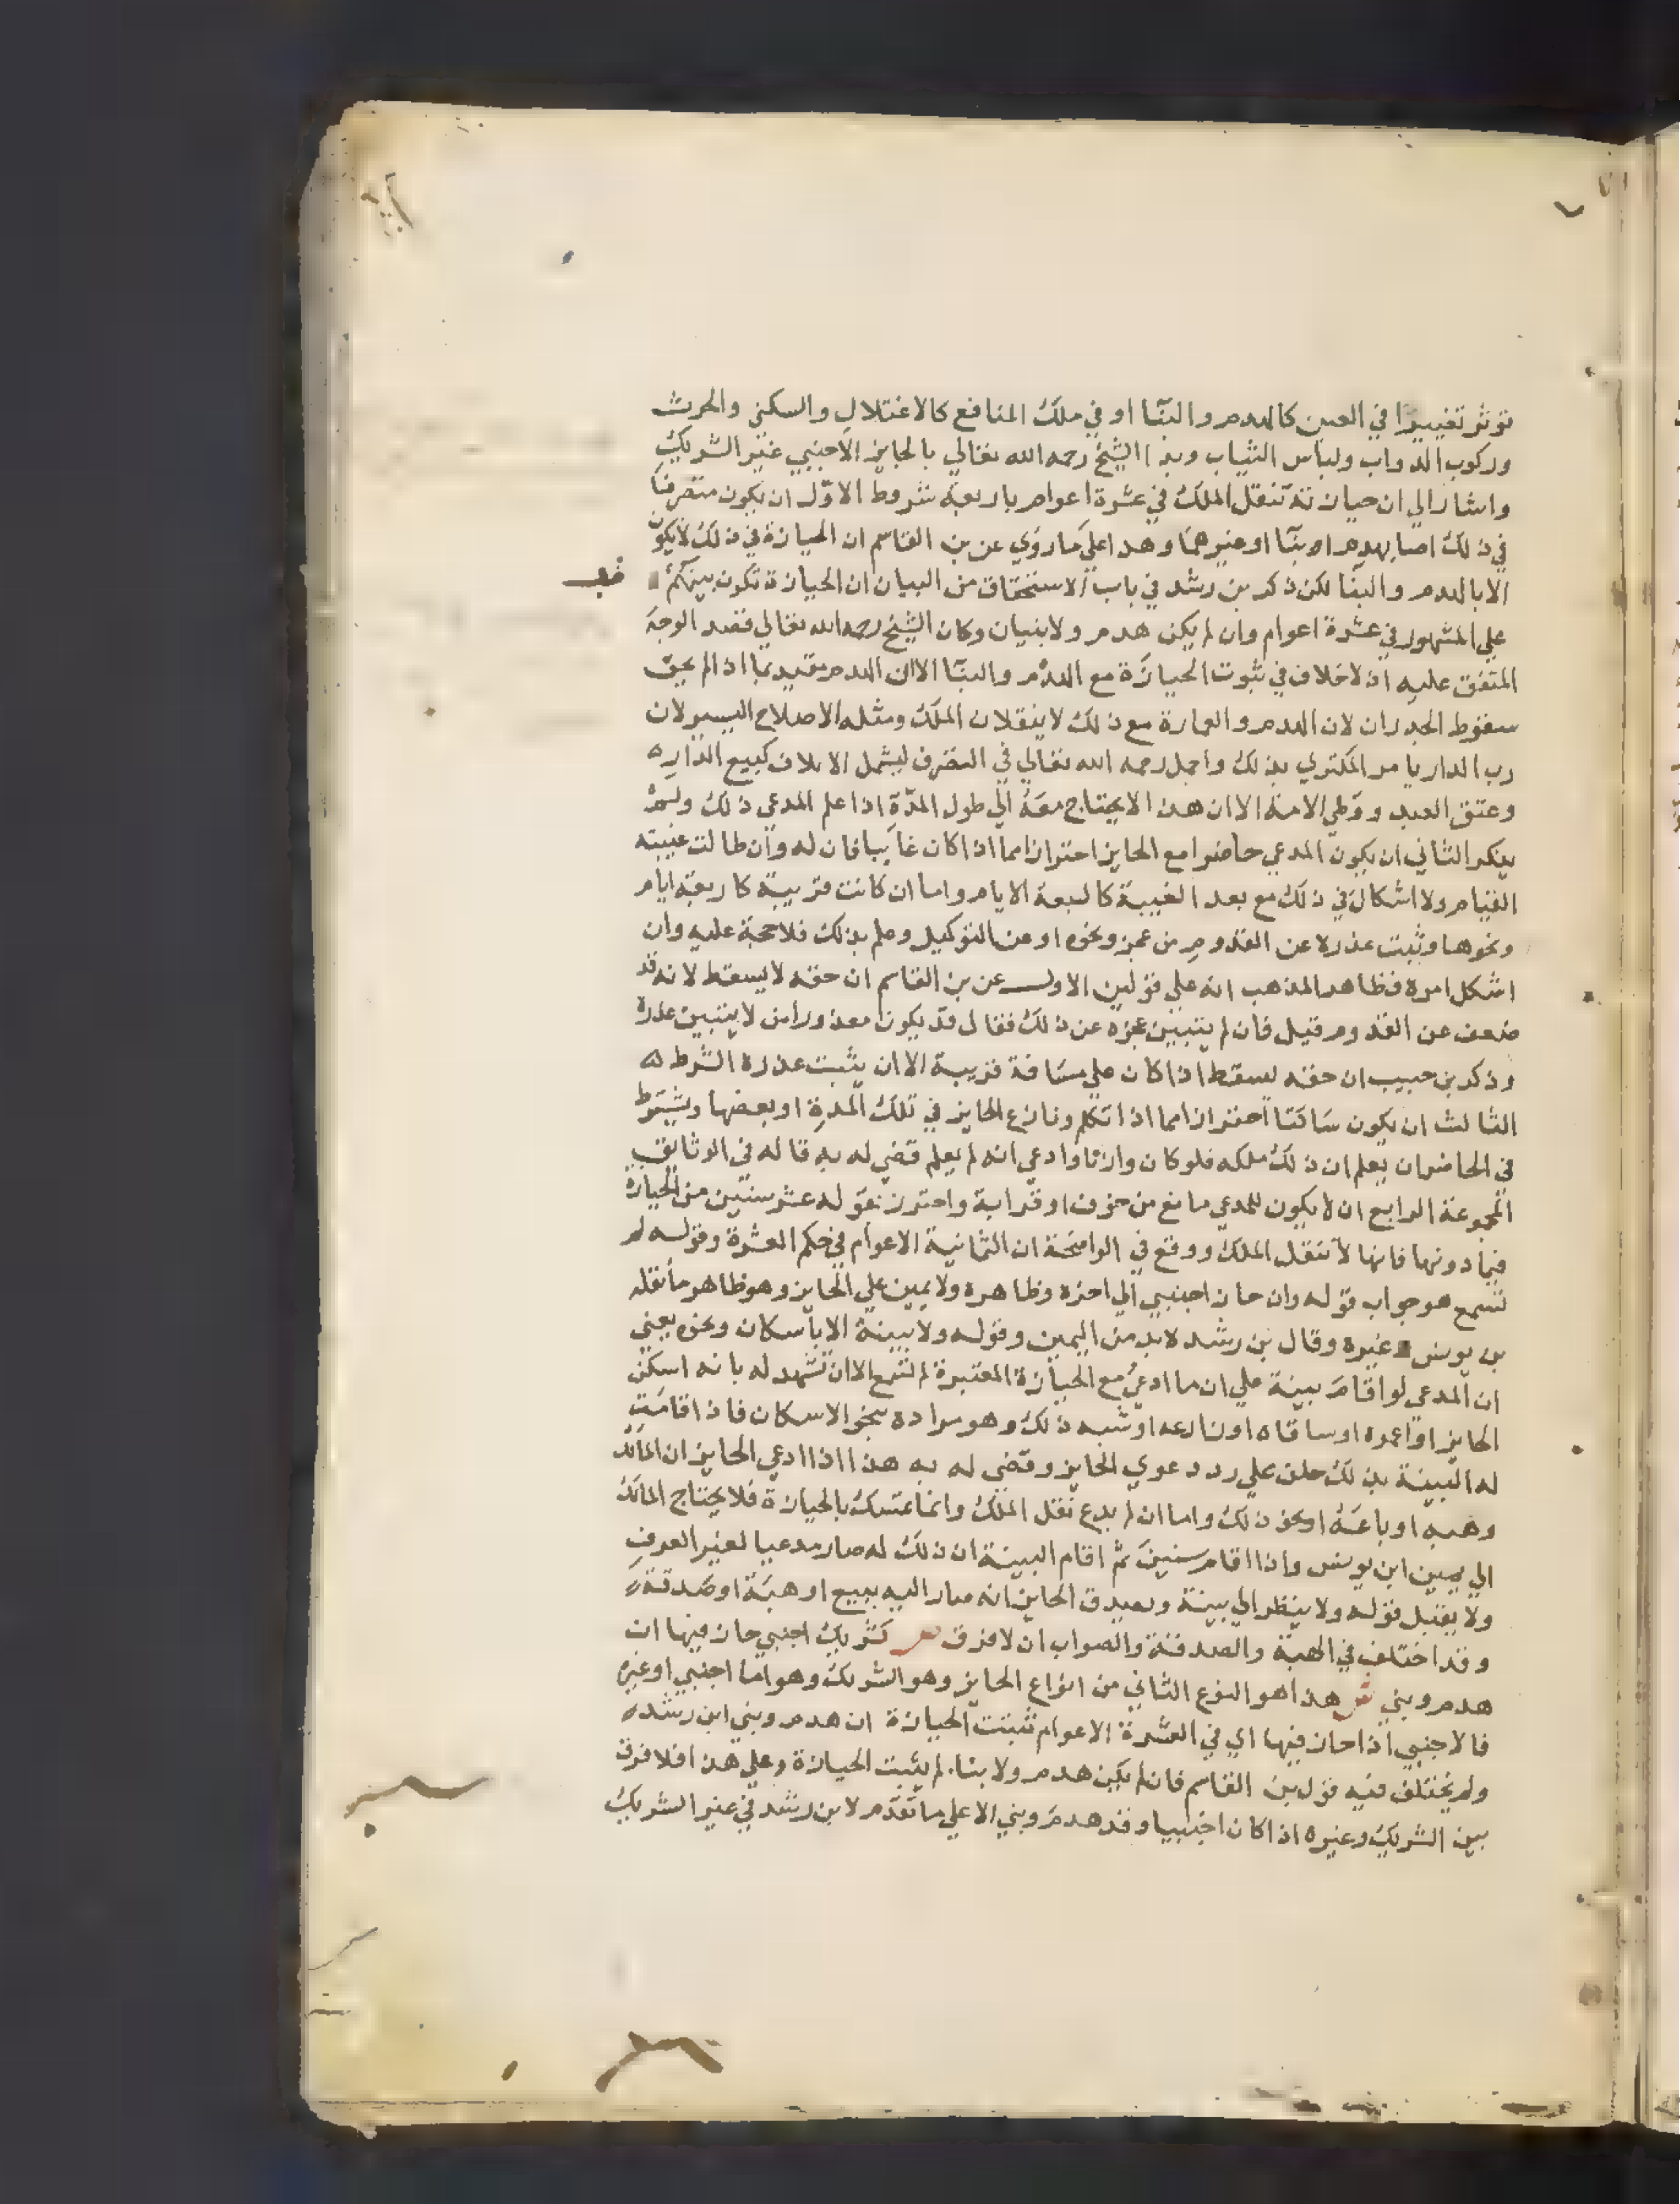 توثر تغييرا في العين كالهدم والبنا او في ملك المنافع كالاغتلال والسكني والحرث
وركوب الدواب ولباس الثياب وبدا الشيخ رحمه الله تعالي بالحايز الاجنبي غير الشريك
واشار الي ان حيازته تنقل الملك في عشرة اعوام باربعة شروط الاول ان يكون متصرفا
في ذلك اما بهدم او بنا او غيرهما وهذا علي ما روي عن بن القاسم ان الحيازة في ذلك لا يكون
الا بالهدم والبنا لكن ذكر بن رشد في باب الاستحقاق من البيان ان الحيازة تكون بينهم
علي المشهور في عشرة اعوام وان لم يكن هدم ولا بنيان وكان الشيخ رحمه الله تعالي قصد الوجه
المتفق عليه اذ لا خلاف في ثبوت الحيازة مع الهدم والبنا الا ان الهدم مقيد بما اذا لم يخف
سقوط الجدران لان الهدم والعمارة مع ذلك لا ينقلان الملك ومثله الاصلاح اليسير لان
رب الدار يامر المكتري بذلك واجمل رحمه الله تعالي في التصرف ليشمل الاتلاف كبيع الدار
وعتق العبد ووطي الامة الا ان هذا لا يحتاج معه الي طول المدة اذا علم المدعي ذلك ولم
ينكر الثاني ان يكون المدعي حاضرا مع الحايز احترازا مما اذا كان غايبا فان له وان طالت غيبته
القيام ولا اشكال في ذلك مع بعد الغيبة كالسبعة الايام واما ان كانت قريبة كاربعة ايام
ونحوها وثبت عذره عن القدوم من عجز ونحوه او عن التوكيل وعلم بذلك فلا حجة عليه وان
اشكل امره فظاهر المذهب انه علي قولين الاول عن بن القاسم ان حقه لا يسقط لانه قد
ضعف عن القدوم قيل فان لم يتبين عجزه عن ذلك فقال قد يكون معذورا من لا يتبين عذره
وذكر بن حبيب ان حقه يسقط اذا كان علي مسافة قريبة الا ان يثبت عذره الشرط
الثالث ان يكون ساكتا احترازا مما اذا تكلم ونازع الحايز في تلك المدة او بعضها ويشترط
في الحاضر ان يعلم ان ذلك ملكه فلو كان وارثا وادعي انه لم يعلم قضي له به قاله في الوثايق
المجموعة الرابع ان لا يكون للمدعي مانع من خوف او قرابة واحترز بقوله عشر سنين من الحيازة
فيما دونها فانها لا تنقل الملك ووقع في الواضحة ان الثمانية الاعوام في حكم العشرة وقوله لم
تسمع هو جواب قوله وان حاز اجنبي الي اخره وظاهره ولا يمين علي الحايز وهو ظاهر ما نقله
بن يونس وغيره وقال بن رشد لا بد من اليمين وقوله ولا بينة الا باسكان ونحوه يعني
ان المدعي لو اقام بينة علي ان ما ادعي مع الحيازة المعتبرة لم تسمع الا ان تشهد له بانه اسكن
الحايز او اعمره او ساقاه او زارعه او شبه ذلك وهو مراده بنحو الاسكان فاذا اقامت
له البينة بذلك حلف علي رد دعوي الحايز وقضي له به هذا اذا ادعي الحايز ان المالك
وهبه او باعه او نحو ذلك واما ان لم يدع نقل الملك وانما تمسك بالحيازة فلا يحتاج المالك
الي يمين ابن يونس واذا اقام سنين ثم اقام البينة ان ذلك له صار مدعيا لغير العرف
ولا يقبل قوله ولا ينظر الي بينة ويصدق الحايز انه صار اليه ببيع او هبة او صدقة
وقد اختلف في الهبة والصدقة والصواب ان لا فرق ص كشريك اجنبي حاز فيها ان
هدم وبني ش هذا هو النوع الثاني من انواع الحايز وهو الشريك وهو اما اجنبي او غيره
فالاجنبي اذا حاز فيها اي في العشرة الاعوام تثبت الحيازة ان هدم وبني ابن رشد
ولم يختلف فيه قول بن القاسم فان لم يكن هدم ولا بنا لم يثبت الحيازة وعلي هذا فلا فرق
بين الشريك وغيره اذا كان اجنبيا وقد هدم وبني الا علي ما تقدم لابن رشد في غير الشريك